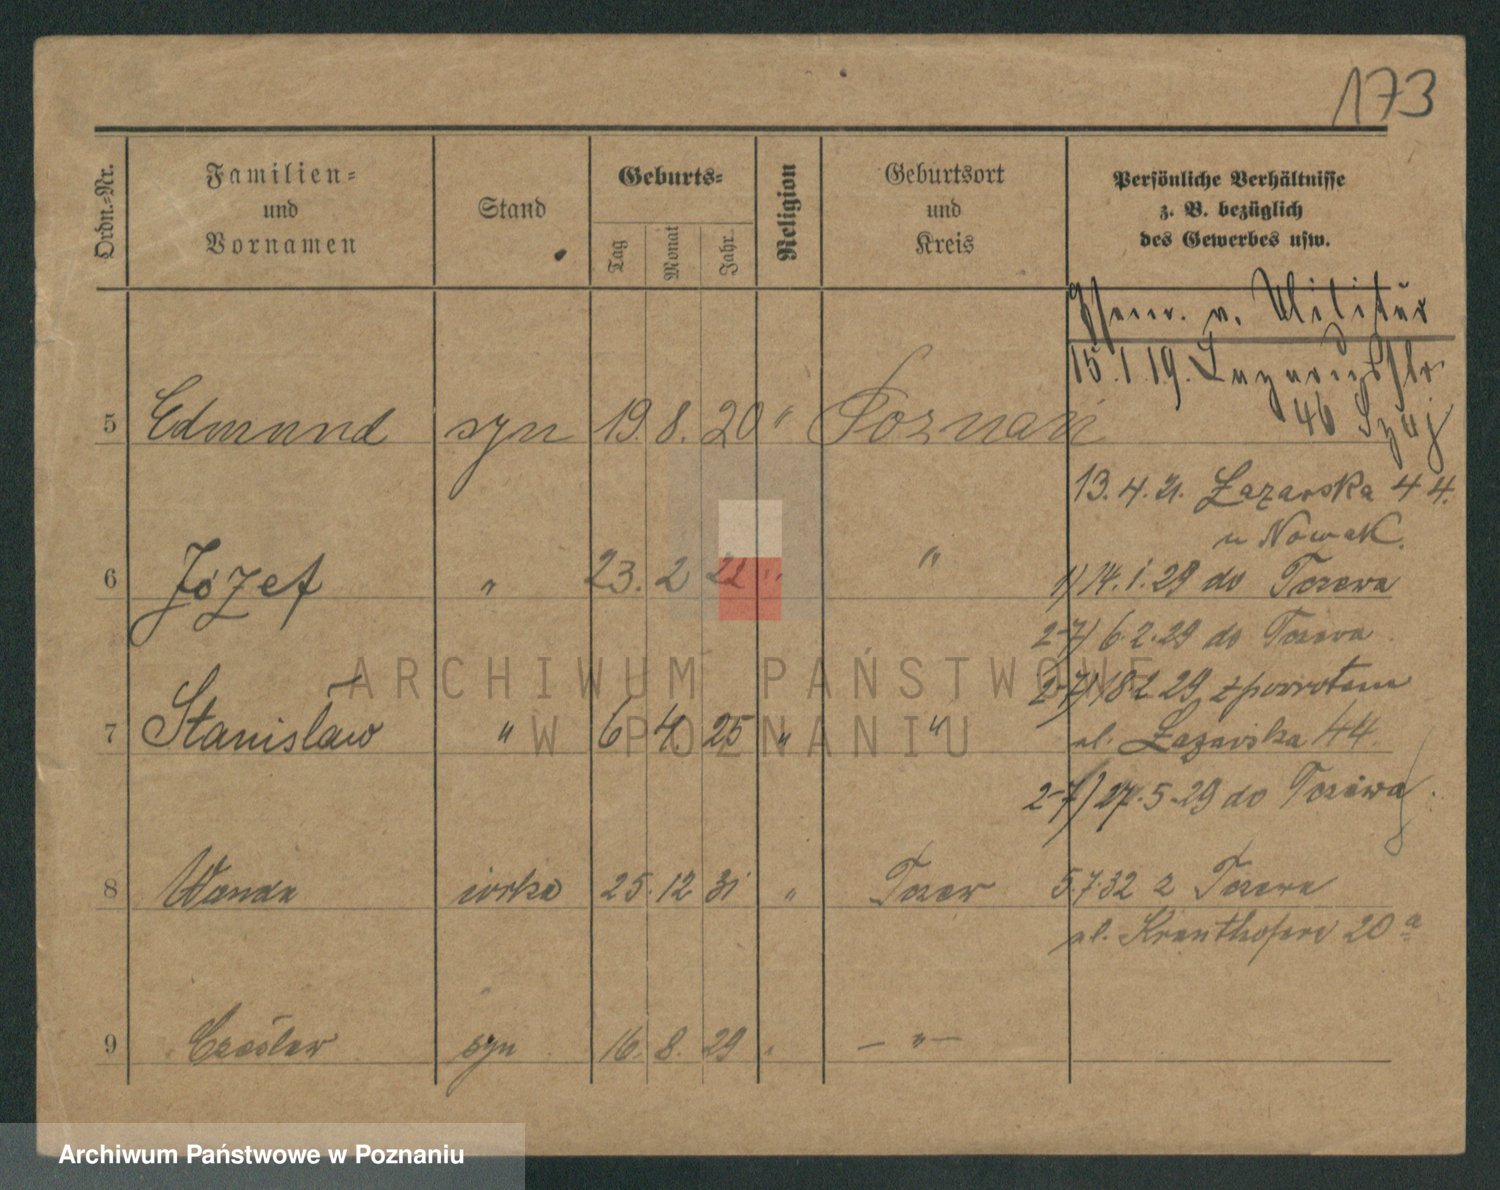 173
Ordn.-Nr.
Familien-
und
Vornamen
Stand
Geburts-
Tag
Monat
Jahr
Religion
Geburtsort
und
Kreis
Persönliche Verhältnisse
z. B. bezüglich
des Gewerbes usw.
v. Militär
15.1.19. Lazarusstr
46
5 Edmund syn 19. 8. 20 " Poznań
13.4.21. Łazarska 44.
u Nowak.
6 Józef " 23. 2 22 " "
1) 14.1.29 do
2-7) 6.2.29 do
7 Stanisław " 6 4 25 " "
2-7) 18.2.29 z powrotem
ul. Łazarska 44.
2-7) 27.5.29 do
8 Wanda córka 25. 12 31 "
5.7.32 z
ul. Kranthofera 20a
9 Czesław syn 16. 8. 29 " — " —
ARCHIWUM PAŃSTWOWE
W POZNANIU
Archiwum Państwowe w Poznaniu